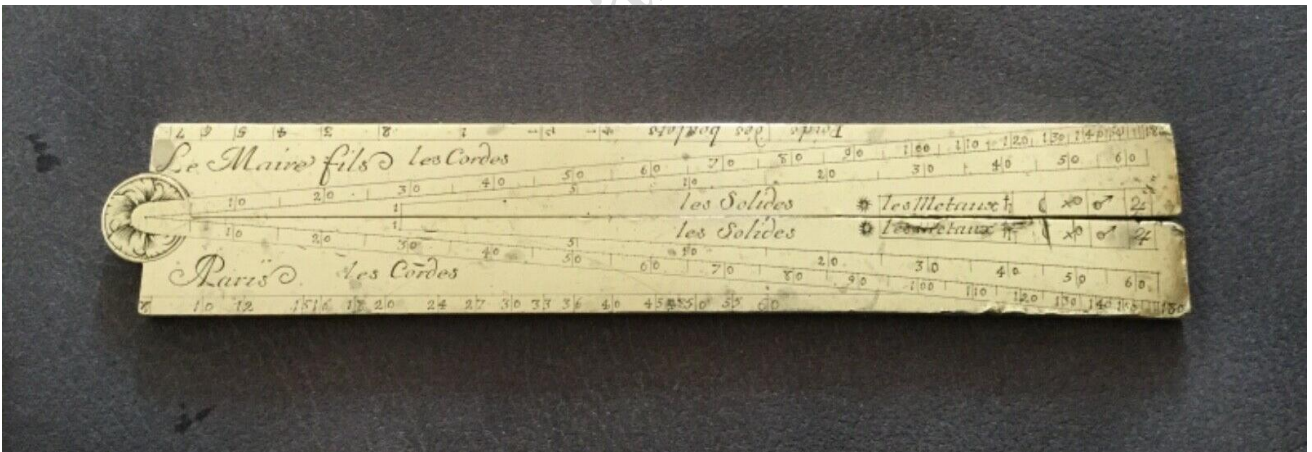 7 6 5 4 3 2 1 Poids des boulets
Le Maire fils les Cordes
10 20 30 40 50 60 70 80 90 100 110 120 130 140 150 180
1 5 10 20 30 40 50 60
les Solides ☼ les Metaux ♄ ☾ ♂ ♃
les Solides ☼ les Metaux ♄ ☾ ♂ ♃
1 5 10 20 30 40 50 60
10 20 30 40 50 60 70 80 90 100 110 120 130 140 150 180
Paris les Cordes
8 10 12 15 16 18 20 24 27 30 33 36 40 45 48 50 55 60